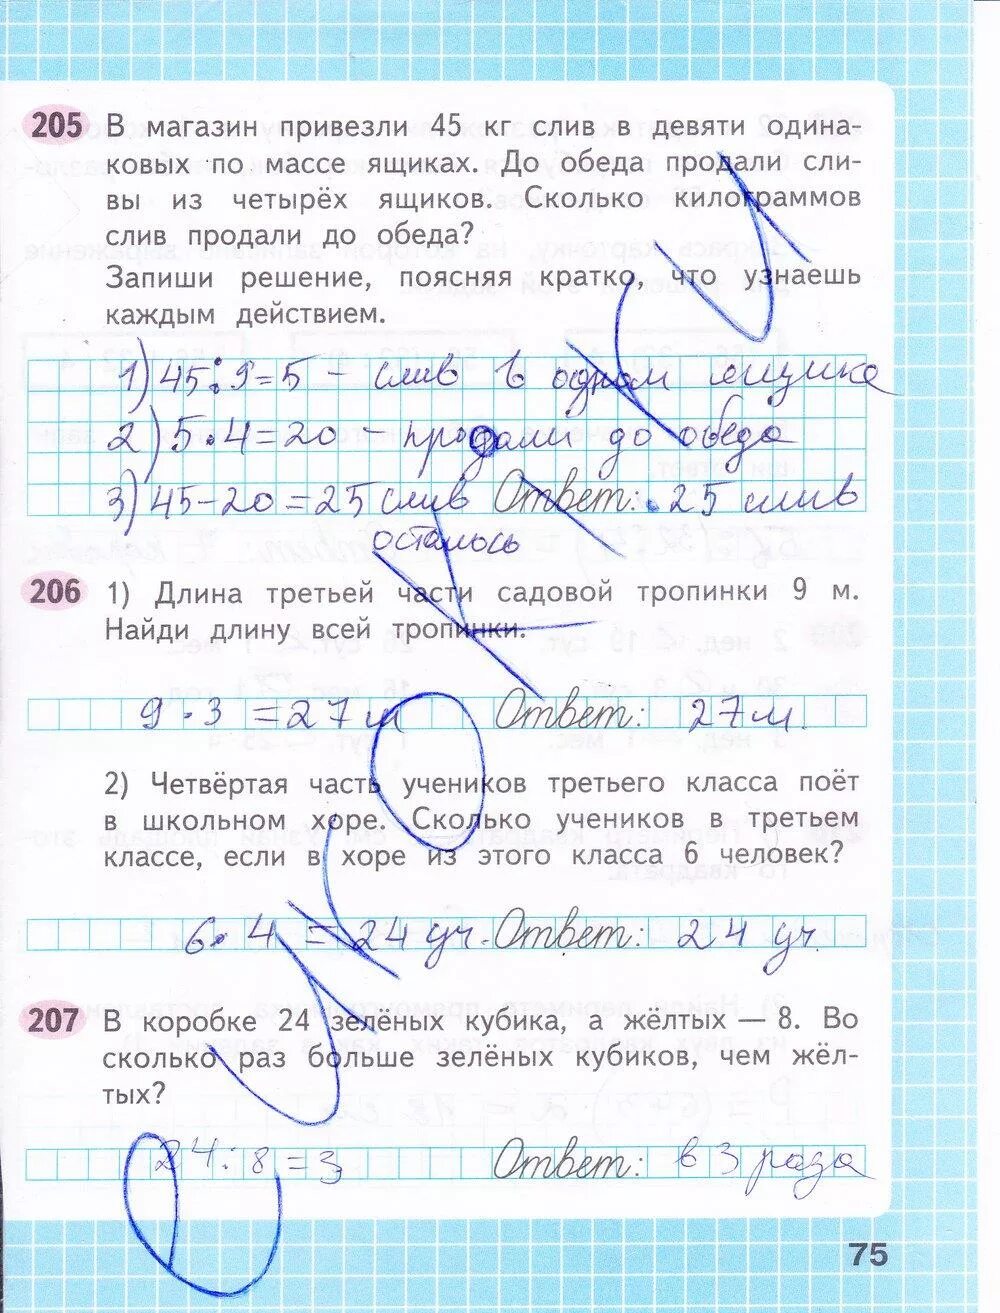 205 В магазин привезли 45 кг слив в девяти одина-
ковых по массе ящиках. До обеда продали сли-
вы из четырёх ящиков. Сколько килограммов
слив продали до обеда?
Запиши решение, поясняя кратко, что узнаешь
каждым действием.
1) 45:9=5 – слив в одном ящике
2) 5·4=20 – продали до обеда
3) 45-20=25 слив Ответ: 25 слив
осталось
206 1) Длина третьей части садовой тропинки 9 м.
Найди длину всей тропинки.
9·3=27 м Ответ: 27 м.
2) Четвёртая часть учеников третьего класса поёт
в школьном хоре. Сколько учеников в третьем
классе, если в хоре из этого класса 6 человек?
6·4=24 уч. Ответ: 24 уч.
207 В коробке 24 зелёных кубика, а жёлтых — 8. Во
сколько раз больше зелёных кубиков, чем жёл-
тых?
24:8=3 Ответ: в 3 раза
75